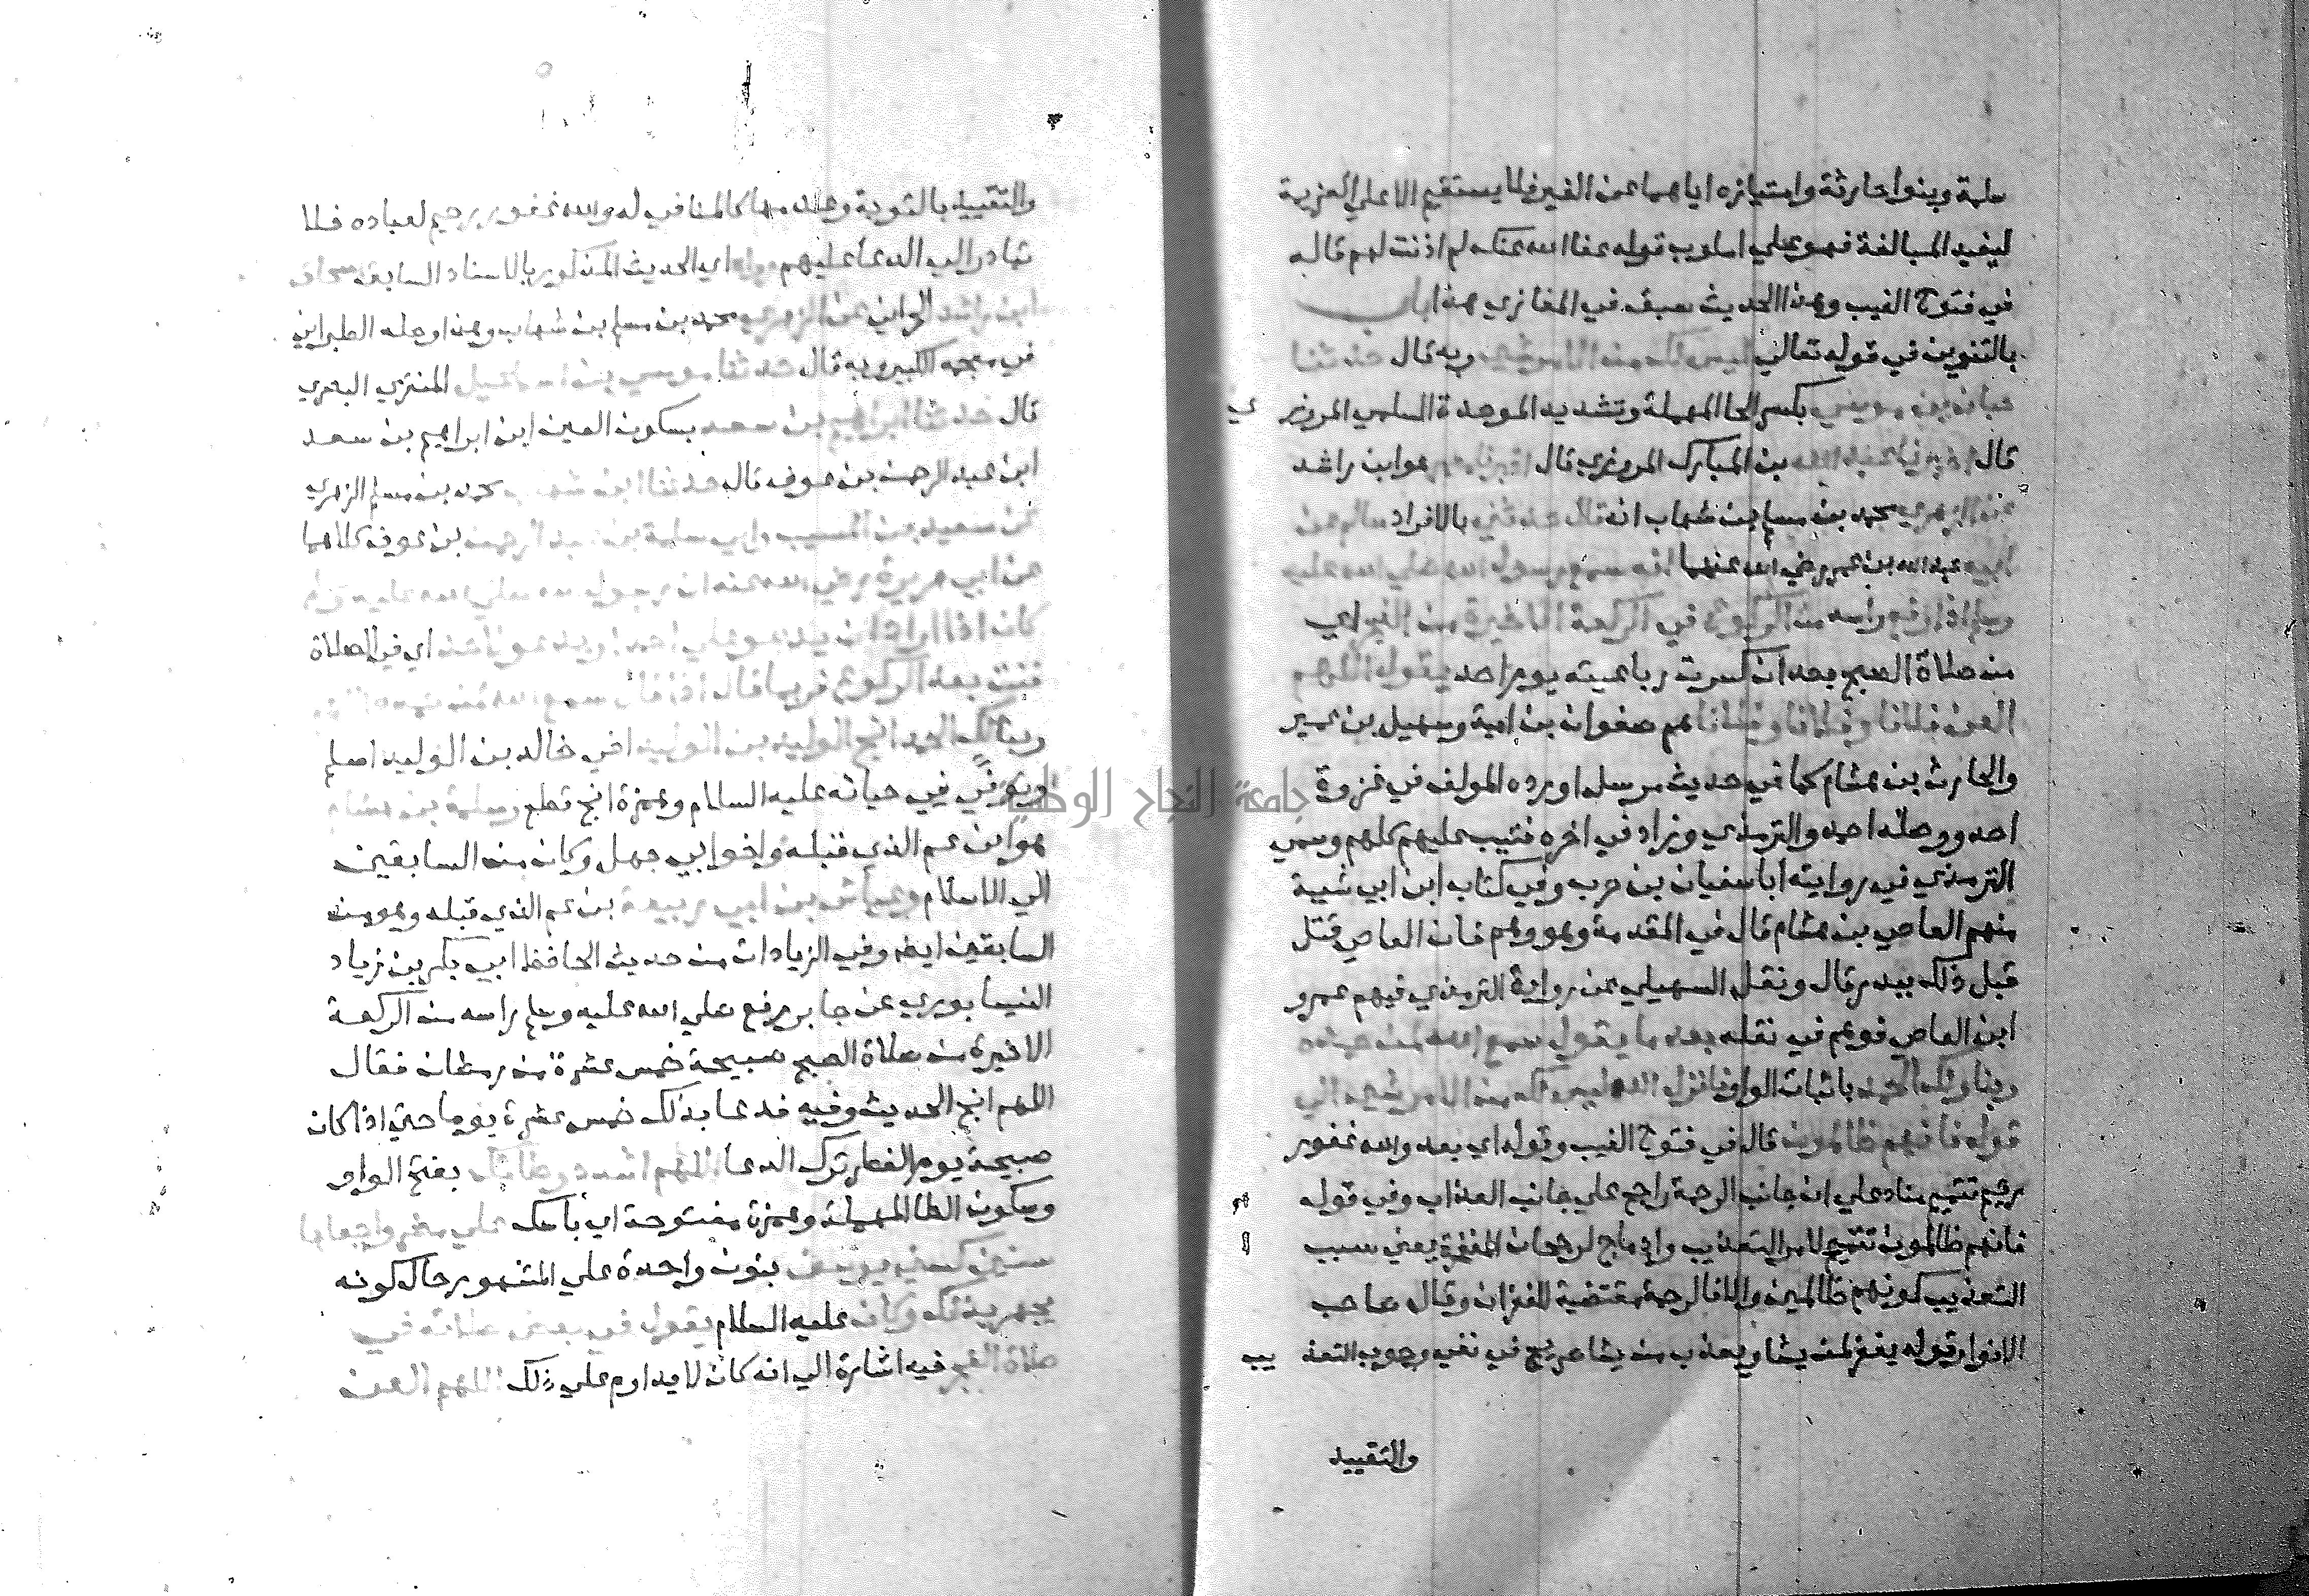 سلمة وبنوا حارثة وامتيازه اياهما عن الغير فلا يستقيم الا علي العزيمة
ليفيد المبالغة فهو علي اسلوب قوله عفا الله عنك لم اذنت لهم قاله
في فتوح الغيب وهذا الحديث سبق في المغازي هذا باب
بالتنوين في قوله تعالي ليس لك من الامر شي وبه قال حدثنا
حبان بن موسي بكسر الحا المهملة وتشديد الموحدة السلمي المروزي
قال اخبرنا عبد الله بن المبارك المروزي قال اخبرنا معمر هو ابن راشد
عن الزهري محمد بن مسلم بن شهاب انه قال حدثني بالافراد سالم عن
ابيه عبد الله بن عمر رضي الله عنهما انه سمع رسول الله صلي الله عليه
وسلم اذا رفع راسه من الركوع في الركعة الاخيرة من الفجر اي
من صلاة الصبح بعد ان كسرت رباعيته يوم احد يقول اللهم
العن فلانا وفلانا وفلانا هم صفوان بن امية وسهيل بن عمير
والحارث بن هشام كما في حديث مرسل اورده المولف في غزوة
احد ووصله احمد والترمذي وزاد في اخره فتيب عليهم كلهم وسمي
الترمذي في روايته ابا سفيان بن حرب وفي كتاب ابن ابي شيبة
منهم العاصي بن هشام قال في المقدمة وهو وهم فان العاصي قتل
قبل ذلك ببدر قال ونقل السهيلي عن رواية الترمذي فيهم عمرو
ابن العاصي فوهم في نقله بعد ما يقول سمع الله لمن حمده
ربنا ولك الحمد باثبات الواو فانزل الله ليس لك من الامر شي الي
قوله فانهم ظالمون قال في فتوح الغيب وقوله اي بعد والله غفور
رحيم تتميم مناد علي ان جانب الرحمة راجح علي جانب العذاب وفي قوله
فانهم ظالمون تتميم لامر التعذيب وادماج لرجحان المغفرة يعني سبب
التعذيب كونهم ظالمين والا فالرحمة مقتضية للغفران وقال صاحب
الانوار قوله يغفر لمن يشا ويعذب من يشا صريح في نفي وجوب التعذيب
والتقييد
والتقييد بالتوبة وعدمها كالمنافي له والله غفور رحيم لعباده فلا
تبادر الي الدعا عليهم رواه اي الحديث المذكور بالاسناد السابق اسحاق
ابن راشد الحراني عن الزهري محمد بن مسلم بن شهاب وهذا وصله الطبراني
في معجمه الكبير وبه قال حدثنا موسي بن اسماعيل المنقري البصري
قال حدثنا ابراهيم بن سعد بسكون العين ابن ابراهيم بن سعد
ابن عبد الرحمن بن عوف قال حدثنا ابن شهاب محمد بن مسلم الزهري
عن سعيد بن المسيب وابي سلمة بن عبد الرحمن بن عوف كلاهما
عن ابي هريرة رضي الله عنه ان رسول الله صلي الله عليه وسلم
كان اذا اراد ان يدعو علي احد او يدعو لاحد اي في الصلاة
قنت بعد الركوع فربما قال اذا قال سمع الله لمن حمده اللهم
ربنا لك الحمد انج الوليد بن الوليد اخي خالد بن الوليد اسلم
وتوفي في حياته عليه السلام وهمزة انج قطع وسلمة بن هشام
هو ابن عم الذي قبله واخو ابي جهل وكان من السابقين
الي الاسلام وعياش بن ابي ربيعة بن عم الذي قبله وهو من
السابقين ايضا وفي الزيادات من حديث الحافظ ابي بكر بن زياد
النيسابوري عن جابر رفع صلي الله عليه وسلم راسه من الركعة
الاخيرة من صلاة الصبح صبيحة خمس عشرة من رمضان فقال
اللهم انج الحديث وفيه فدعا بذلك خمس عشرة يوما حتي اذا كان
صبيحة يوم الفطر ترك الدعا اللهم اشدد وطاتك بفتح الواو
وسكون الطا المهملة وهمزة مفتوحة اي بأسك علي مضر واجعلها
سنين كسني يوسف بنون واحدة علي المشهور حال كونه
يجهر بذلك وكان عليه السلام يقول في بعض صلاته في
صلاة الفجر فيه اشارة الي انه كان لا يداوم علي ذلك اللهم العن
جامعة النجاح الوطنية